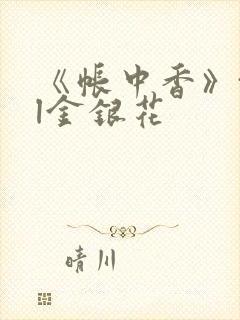 《帐中香》
|金银花
晴川